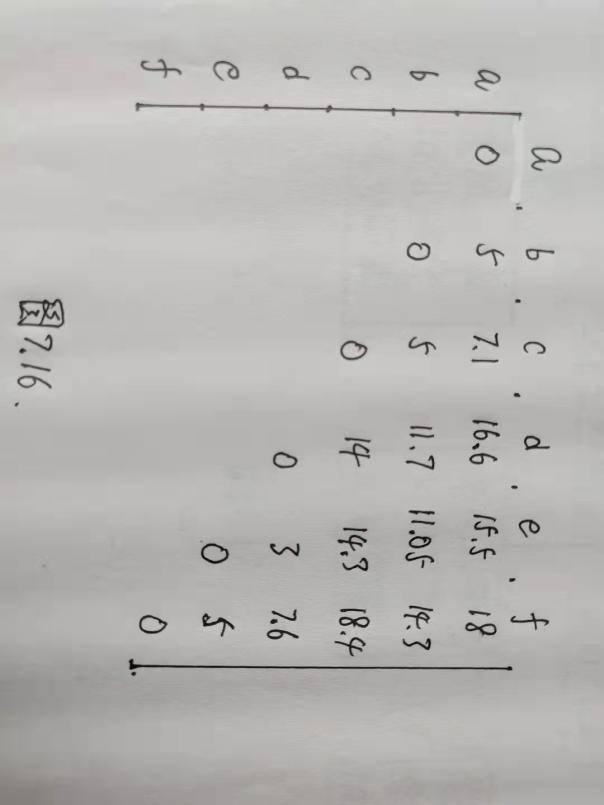 a. b. c. d. e. f
a 0 5 7.1 16.6 15.5 18
b 0 5 11.7 11.05 14.3
c 0 14 14.3 18.4
d 0 3 7.6
e 0 5
f 0
图7.16.